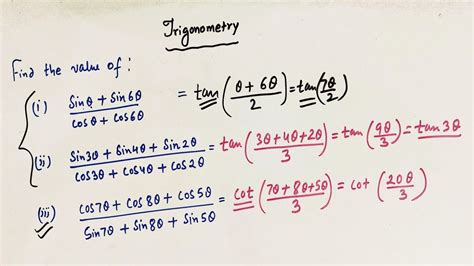 Trigonometry
Find the value of :
(i) (sinθ + sin6θ)/(cosθ + cos6θ) = tan((θ + 6θ)/2) = tan(7θ/2)
(ii) (sin3θ + sin4θ + sin2θ)/(cos3θ + cos4θ + cos2θ) = tan((3θ+4θ+2θ)/3) = tan(9θ/3) = tan3θ
(iii) (cos7θ + cos8θ + cos5θ)/(sin7θ + sin8θ + sin5θ) = cot((7θ+8θ+5θ)/3) = cot(20θ/3)